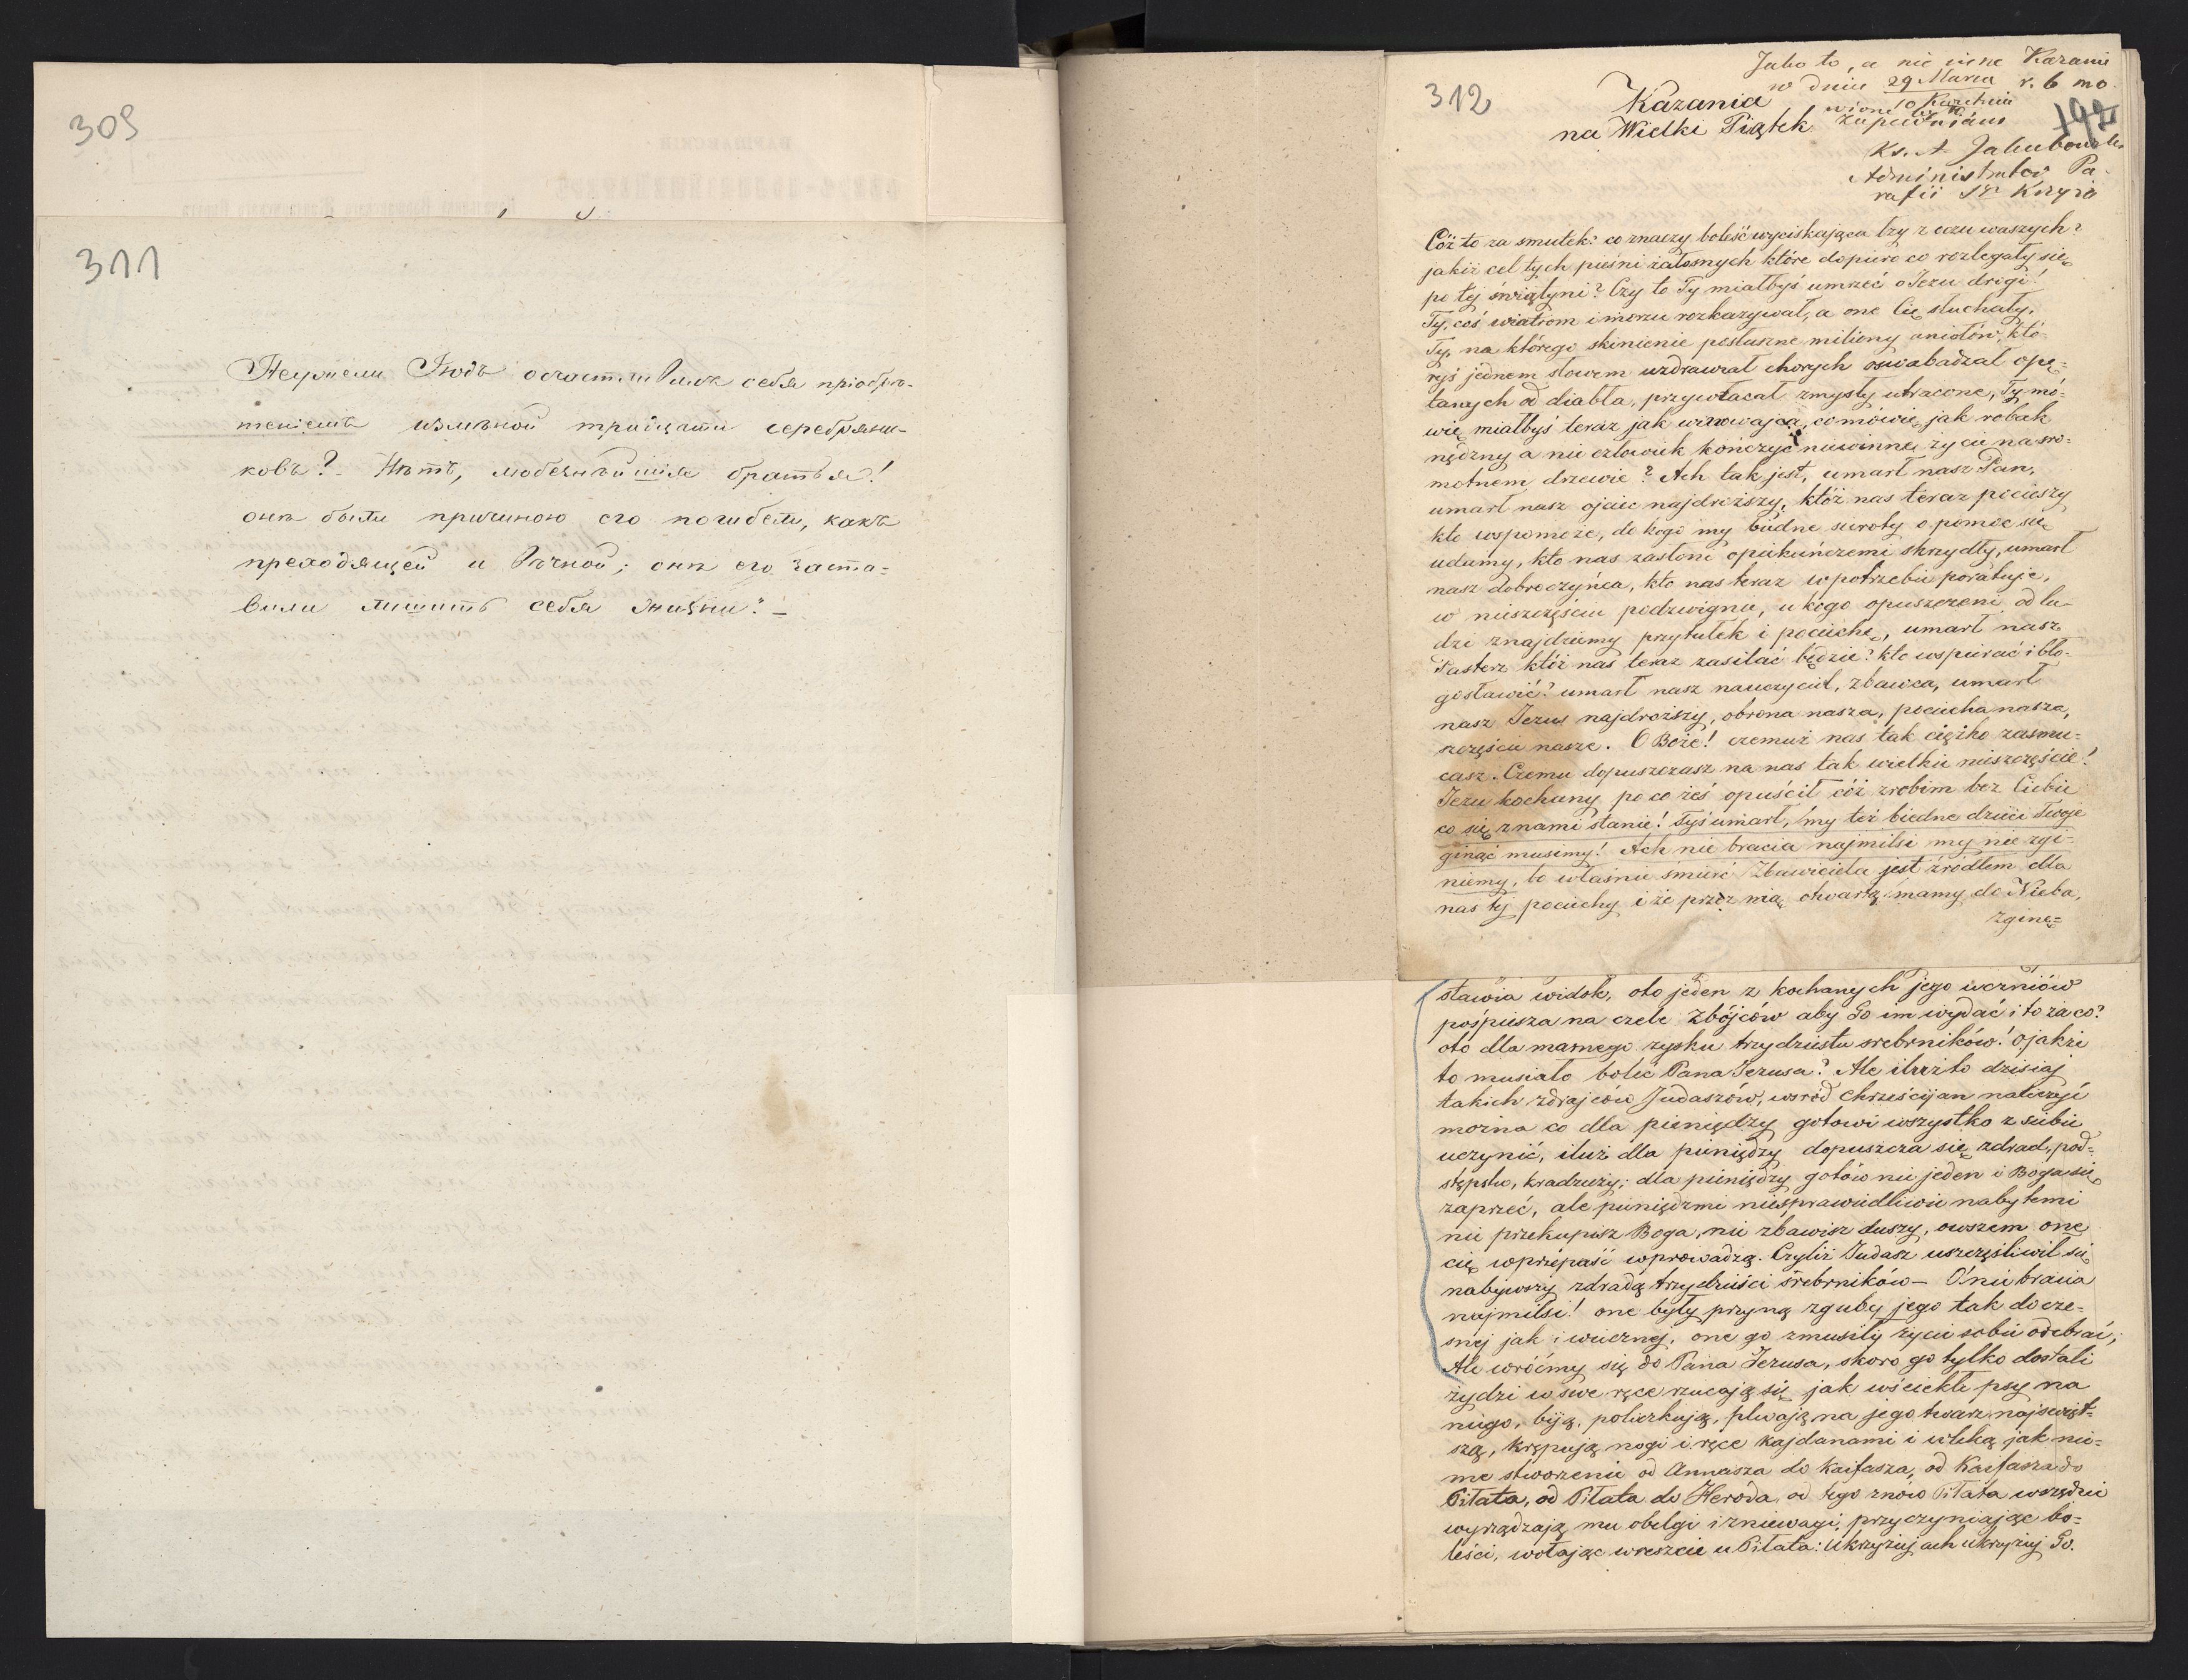 309
311
Неужели Іюда осчастливилъ себя пріобрѣ-
теніемъ измѣной тридцати серебряни-
ковъ? Нѣтъ, любезнѣйшія братья!
онѣ были причиною его погибели, какъ
преходящей и вѣчной; онѣ его заста=
вили лишить себя жизни."—
312
Jako to, a nie inne Kazanie
w dniu 29 Marca r. b mo
10 Kwietnia
wione
zapewniam
197
Ks. A Jakubowski
Administrator Pa-
rafii Sgo Krzyża
Kazania
na Wielki Piątek
Cóż to za smutek? co znaczy boleść wyciskająca łzy z oczu waszych?
jakiż cel tych pieśni żałosnych które dopiero co rozlegały się
po tej świątyni? Czy to Ty miałbyś umrzeć o Jezu drogi!
Ty, coś wiatrom i morzu rozkazywał, a one Cię słuchały,
Ty, na którego skinienie posłuszne miliony aniołów, któ-
ryś jednem słowem uzdrawiał chorych oswabadzał opę=
tanych od diabła, przywracał zmysły utracone, Ty mó=
wię miałbyś teraz jak winowajca, co mówię, jak robak
nędzny a nie człowiek kończyć niewinne życie na sro=
motnem drzewie? Ach tak jest, umarł nasz Pan,
umarł nasz ojciec najdroższy, któż nas teraz pocieszy
kto wspomoże, do kogo my biedne sieroty o pomoc się
udamy, kto nas zasłoni opiekuńczemi skrzydły, umarł
nasz dobroczyńca, kto nas teraz w potrzebie poratuje,
w nieszczęściu podzwignie, u kogo opuszczeni od lu-
dzi znajdziemy przytułek i pociechę, umarł nasz
Pasterz któż nas teraz zasilać będzie? kto wspierać i bło-
gosławić? umarł nasz nauczyciel, zbawca, umarł
nasz Jezus najdroższy, obrona nasza, pociecha nasza,
szczęście nasze. O Boże! czemuż nas tak ciężko zasmu=
casz. Czemu dopuszczasz na nas tak wielkie nieszczęście!
Jezu kochany po co żeś opuścił cóż zrobim bez Ciebie
co się z nami stanie! Tyś umarł, my też biedne dzieci Twoje
ginąć musimy! Ach nie bracia najmilsi my nie zgi=
niemy, bo właśnie śmierć Zbawiciela jest źródłem dla
nas tej pociechy i że przez nią otwartą mamy do Nieba,
zginę=
stawia widok, oto jeden z kochanych jego uczniów
pośpiesza na czele zbójców aby Go im wydać i to za co?
oto dla marnego zysku trzydziestu srebrników! O jakże
to musiało boleć Pana Jezusa? Ale iluż to dzisiaj
takich zdrajców Judaszów, wśród chrześcijan naliczyć
można co dla pieniędzy gotowi wszystko z siebie
uczynić, iluż dla pieniędzy dopuszcza się zdrad, pod=
stępstw, kradzieży; dla pieniędzy gotów nie jeden i Boga się
zaprzeć, ale pieniędzmi niesprawiedliwie nabytemi
nie przekupisz Boga, nie zbawisz duszy, owszem one
cię w przepaść wprowadzą. Czyliż Judasz uszczęśliwił się
nabywszy zdradą trzydzieści śrebrników— O! nie bracia
najmilsi! one były przyną zguby jego tak docze=
snej jak i wiecznej, one go zmusiły życie sobie odebrać;
Ale wróćmy się do Pana Jezusa, skoro go tylko dostali
żydzi w swe ręce rzucają się jak wściekłe psy na
niego, biją, policzkują, plwają na jego twarz najswięt=
szą, krępują nogi i ręce kajdanami i wleką jak nie=
me stworzenie od Annasza do Kaifasza, od Kaifasza do
Piłata, od Piłata do Heroda, od tego znów Piłata wszędzie
wyrządzają mu obelgi i zniewagi, przyczyniając bo=
leści, wołając wreszcie u Piłata: Ukrzyżuj ach ukrzyżuj Go.